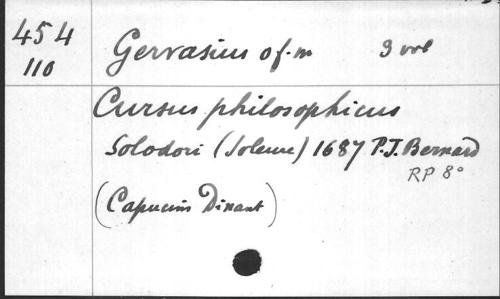 454 Gervasius of.m 3 vol
110
Cursus philosophicus
Solodori (Soleure) 1687 P.J. Bernard
RP 8°
(Capucins Dinant)